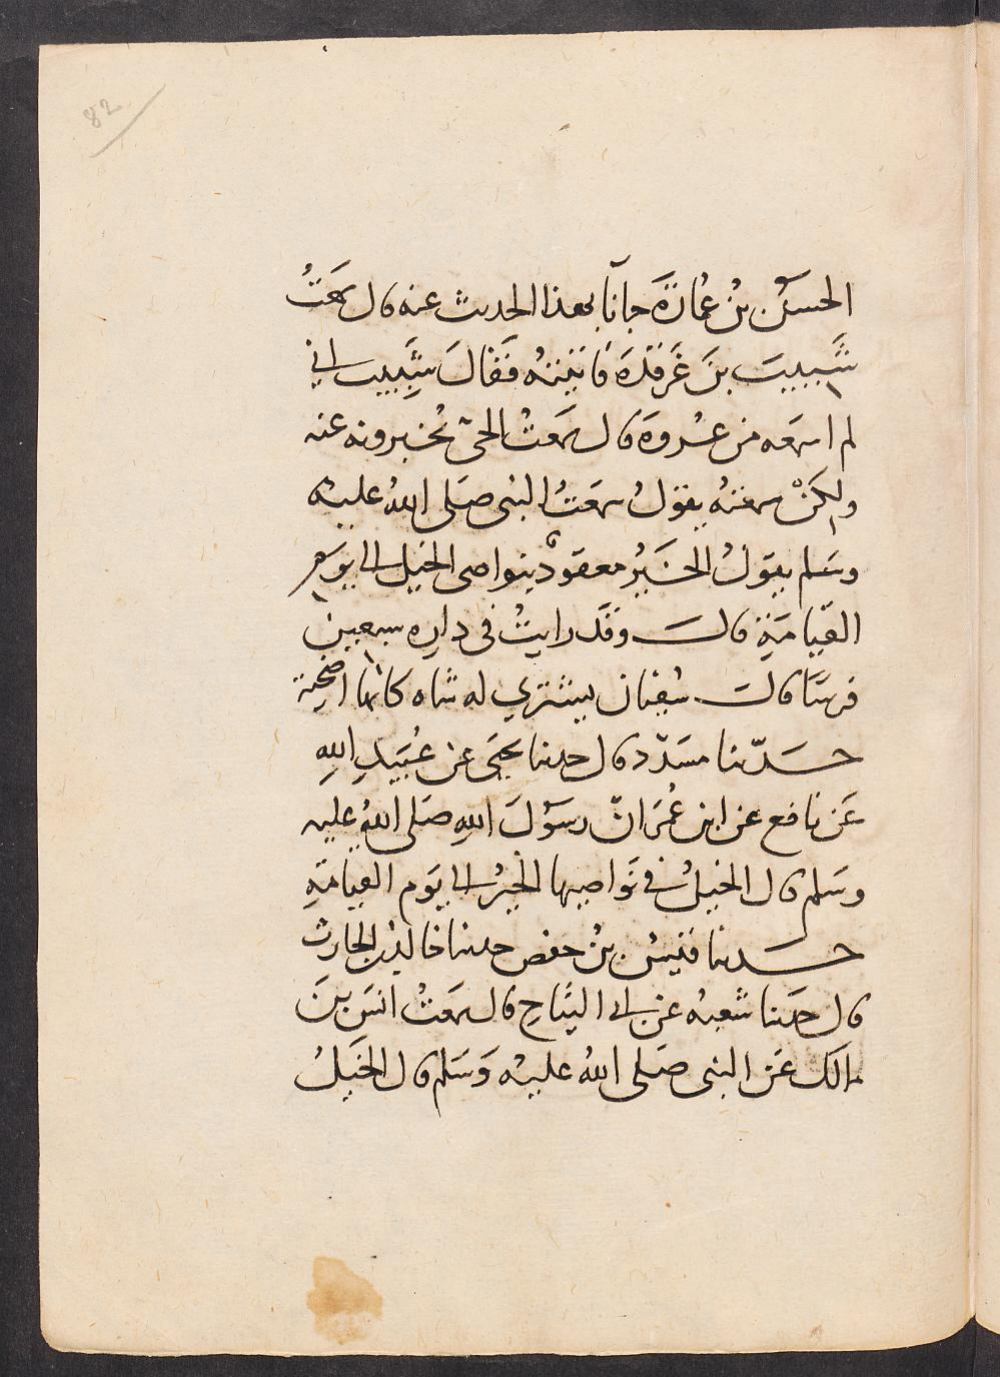 82
الحسن بن عُمَارَةَ جانَا بهذا الحديث عنه قال سَمعَتُ
شَبيبَ بنَ غَرقدَةَ فَاتيتهُ فَقَالَ شَبيب اني
لم اسمعه من عُروةَ قال سَمَعتُ الحيّ يُخبرونه عنه
ولكنْ سمعتهُ يقولُ سَمعَتُ النبى صَلى اللهُ عليه
وسَلم يقولُ الخَيرُ معقودٌ بنواصى الخيل الى يوم
القيامَةِ قالَ وقَد رايتُ فى داره سبعين
فرسًا قالَ سُفيان يشتري له شاه كانها اضحية
حَدّثنا مسَدّد قال حدثنا يحيَى عن عُبَيدِ اللهِ
عَن نافع عن ابن عُمَرَ انّ رسُولَ اللهِ صَلى اللهُ عليه
وسَلم قال الخيلُ فى نَواصيها الخيرُ الى يَوم القيامَةِ
حَدثنا قيسُ بنُ حفص حدثنا خالد بن الحارث
قال حَدثنا شعبه عن ابى التيَّاحِ قال سَمَعتُ انسَ بنَ
مالك عَن النبى صَلى اللهُ عليه وَسَلم قال الخَيلُ